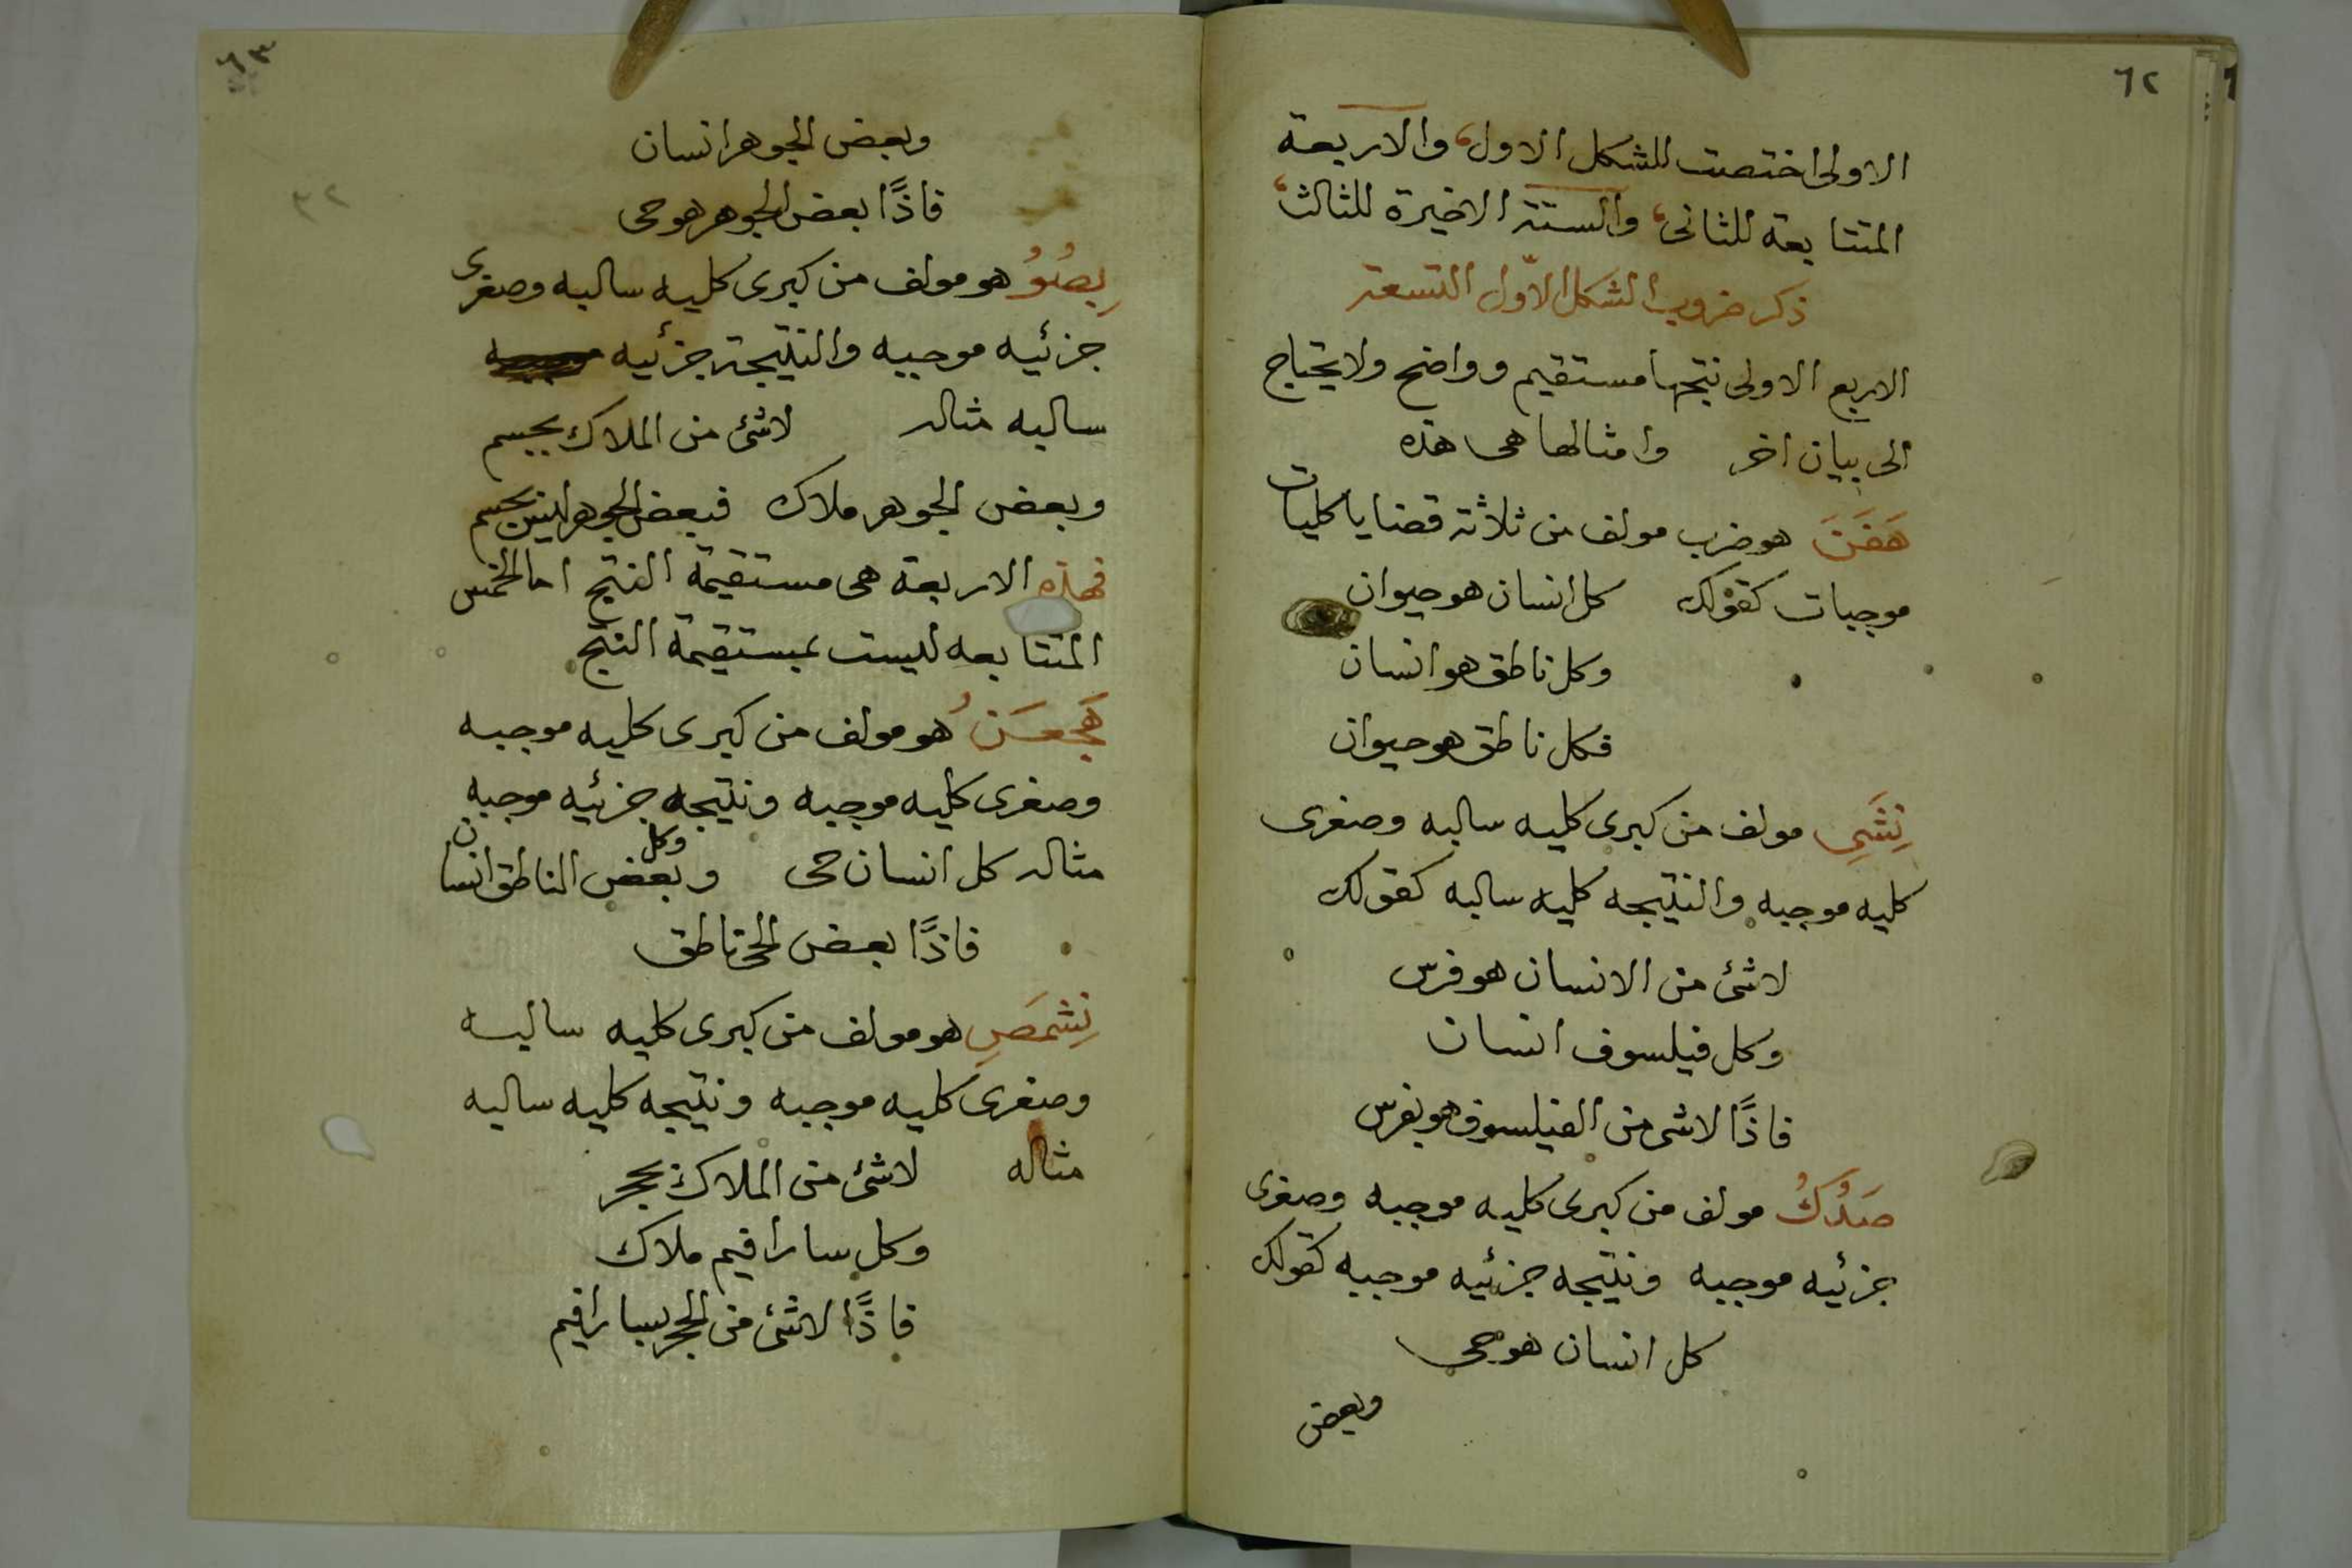 ٦٢
الاولى اختصت للشكل الاول، والاربعة
المتتابعة للثانى، والستة الاخيرة للثالث،
ذكر ضروب الشكل الاوّل التسعة
الاربع الاولى نتجها مستقيم وواضح ولا يحتاج
الى بيان اخر وامثالها هى هذه
هو ضرب مولف من ثلاثة قضايا كليات
موجبات كقولك كل انسان هو حيوان
وكل ناطق هو انسان
فكل ناطق هو حيوان
مولف من كبرى كليه سالبه وصغرى
كليه موجبه والنتيجه كليه سالبه كقولك
لاشئ من الانسان هو فرس
وكل فيلسوف انسان
فاذًا لاشى من الفيلسوف هو بفرس
مولف من كبرى كليه موجبه وصغرى
جزئيه موجبه ونتيجه جزئيه موجبه كقولك
كل انسان هو حى
وبعض
٦٣
وبعض الجوهر انسان
٣٢
فاذًا بعض الجوهر هو حى
هو مولف من كبرى كليه سالبه وصغرى
جزئيه موجبيه والنتيجة جزئيه
سالبه مثاله لاشئ من الملاك بجسم
وبعض الجوهر ملاك فبعض الجوهر ليس بجسم
فهذه الاربعة هى مستقيمة النتج اما الخمس
المتتابعه ليست بمستقيمة النتج
هو مولف من كبرى كليه موجبه
وصغرى كليه موجبه ونتيجه جزئيه موجبه
وكل
مثاله كل انسان حى وبعض الناطق انسان
فاذًا بعض الحى ناطق
نِشمَصِ هو مولف من كبرى كليه سالبه
وصغرى كليه موجبه ونتيجه كليه سالبه
مثاله لاشئ من الملاك بحجر
وكل سارافيم ملاك
فاذًا لاشئ من الحجر بسارافيم